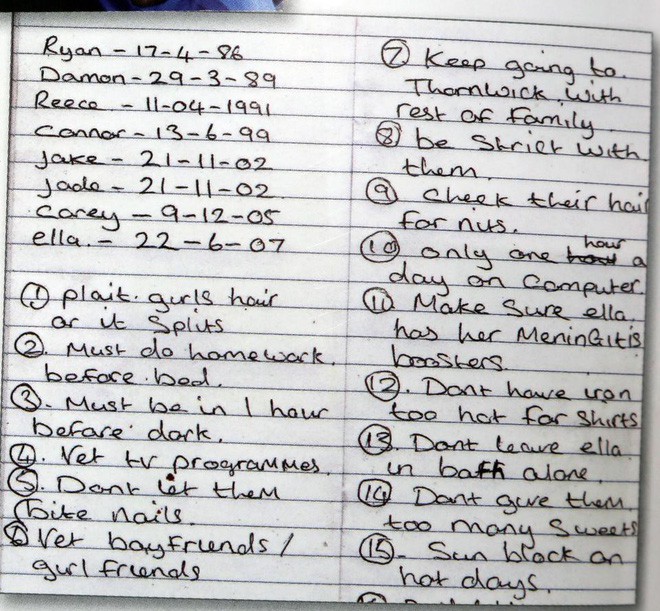 Ryan - 17-4-86
Damon - 29-3-89
Reece - 11-04-1991
Connor - 13-6-99
Jake - 21-11-02
Jade - 21-11-02
Corey - 9-12-05
ella. - 22-6-07
① plait. girls hair
or it splits
②. Must do homework.
before bed.
③. Must be in 1 hour
before dark.
④. Vet tv programmes.
⑤. Dont let them
bite nails.
⑥ Vet boyfriends /
girl friends
⑦ Keep going to.
Thornwick with
rest of family
⑧ be strict with
them.
⑨ Check their hair
for nits.
⑩ only one hour a
day on computer.
⑪ Make sure ella.
has her MeninGitis
boosters.
⑫. Dont have iron
too hot for shirts
⑬. Dont leave ella
in bath alone.
⑭ Dont give them.
too many sweets
⑮. Sun block on
hot days.